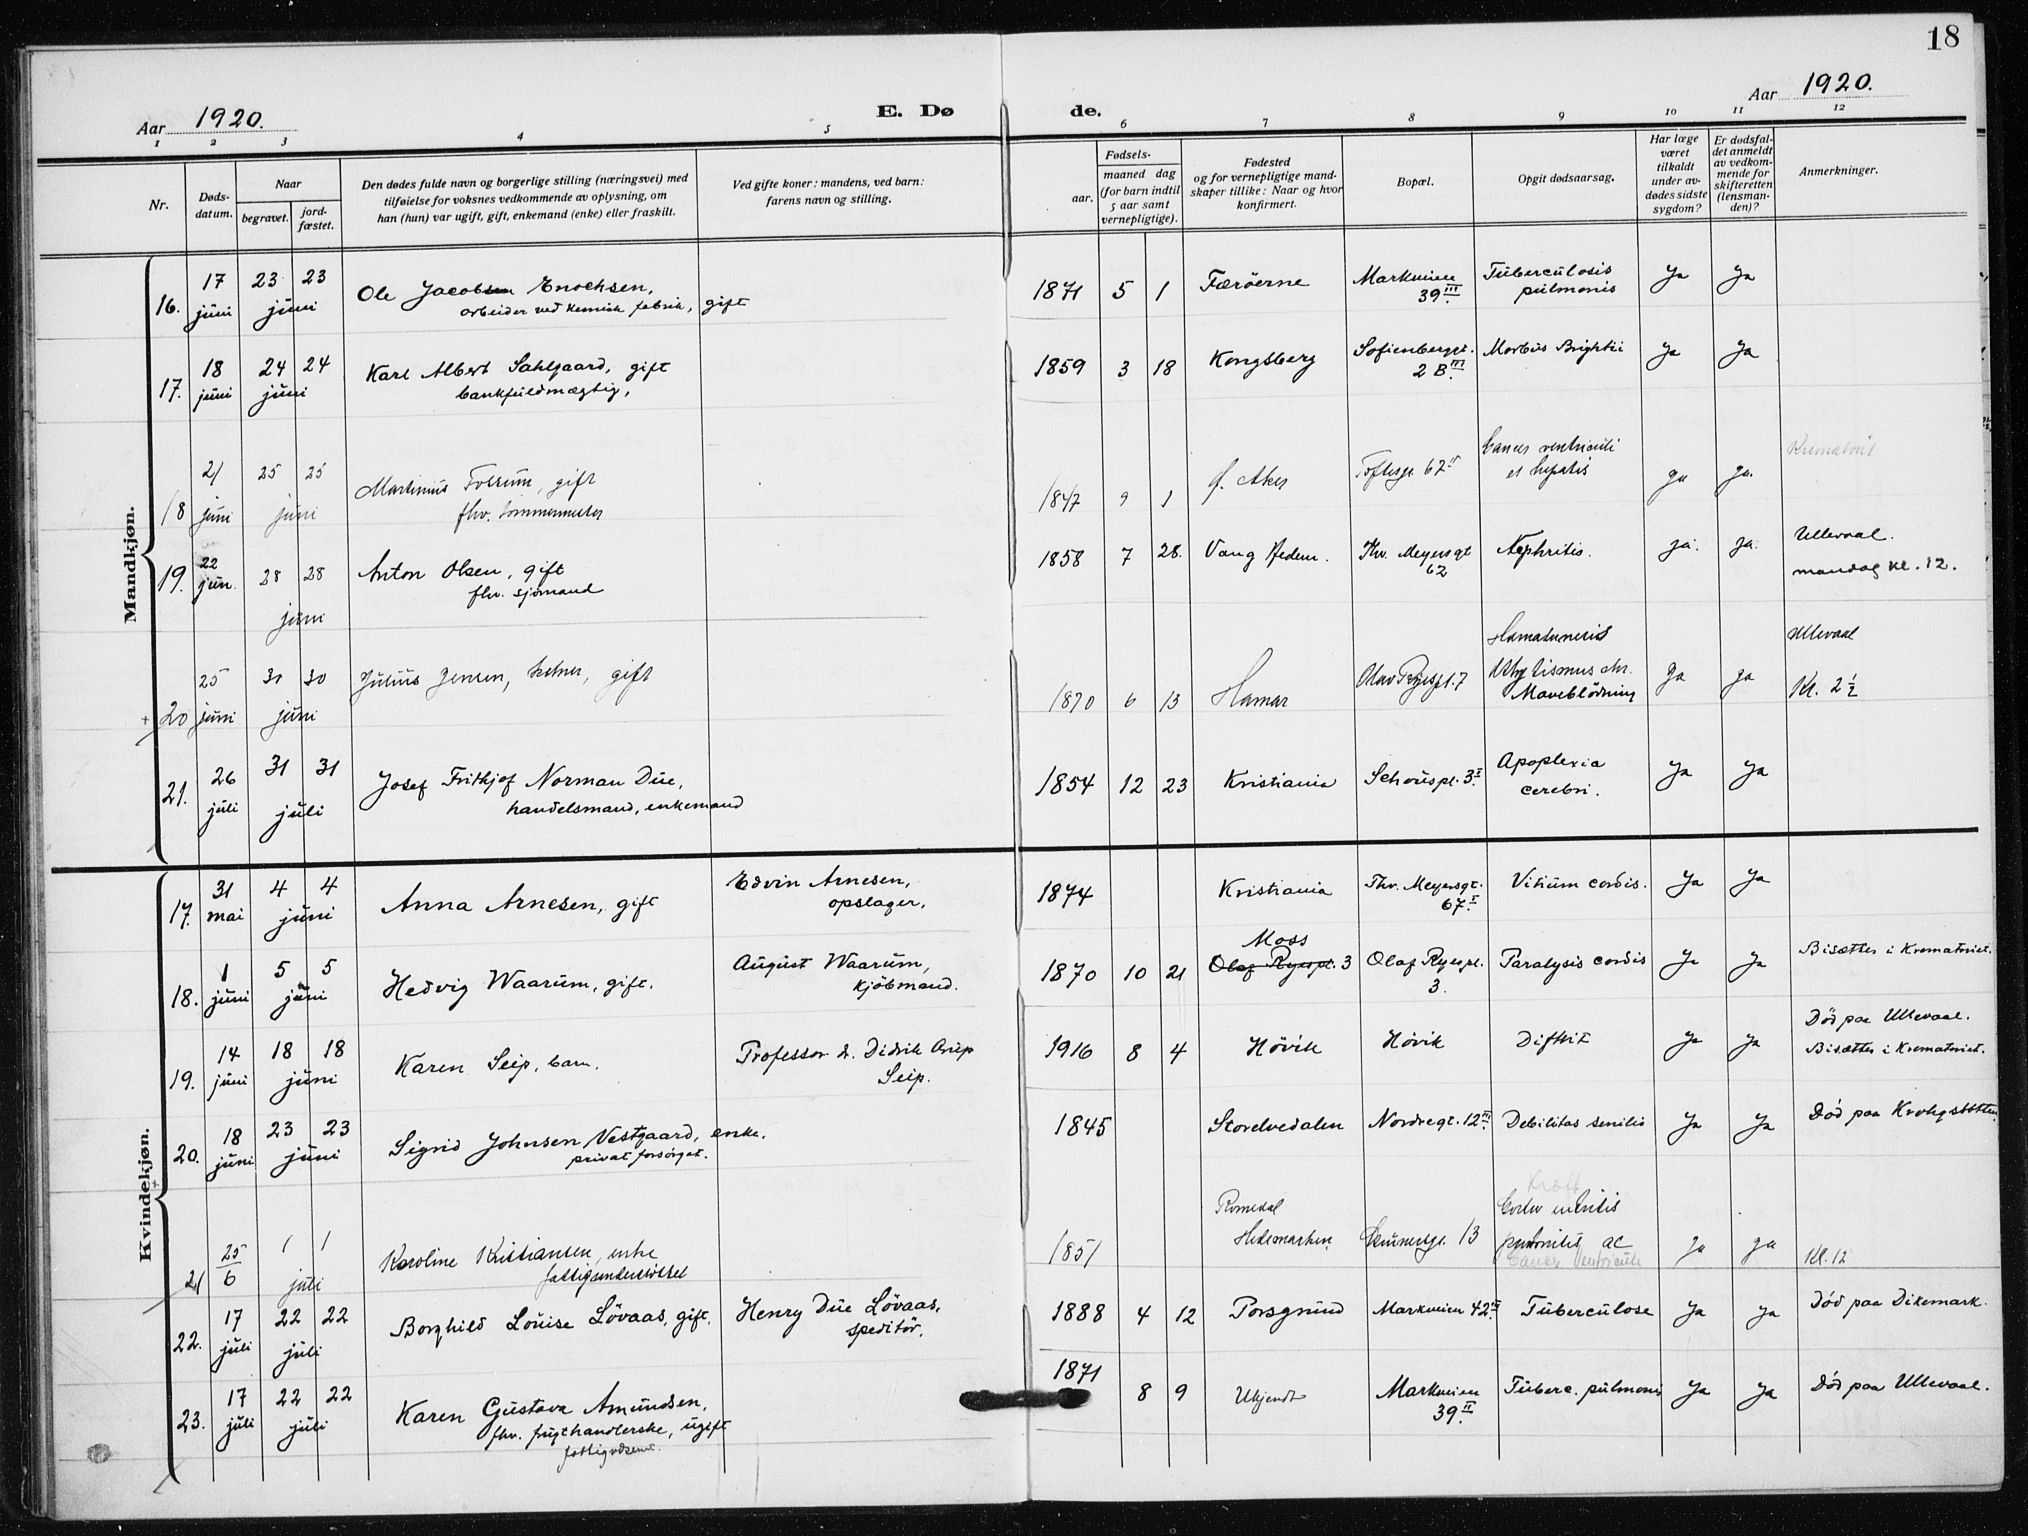 18
Aar 1920.
E. Dø
de.
Aar 1920.
1 2 3 4 5 6 7 8 9 10 11 12
Nr.
Døds-
datum.
Naar
begravet.
jord-
fæstet.
Den dødes fulde navn og borgerlige stilling (næringsvei) med
tilføielse for voksnes vedkommende av oplysning, om
han (hun) var ugift, gift, enkemand (enke) eller fraskilt.
Ved gifte koner: mandens, ved barn:
farens navn og stilling.
Fødsels-
aar.
maaned dag
(for barn indtil
5 aar samt
vernepligtige).
Fødested
og for vernepligtige mand-
skaper tillike: Naar og hvor
konfirmert.
Bopæl.
Opgit dødsaarsag.
Har læge
været
tilkaldt
under av-
dødes sidste
sygdom?
Er dødsfal-
det anmeldt
av vedkom-
mende for
skifteretten
(lensman-
den)?
Anmerkninger.
Mandkjøn.
16. 17 juni 23 23 juni
Ole Jacobsen Enochsen,
arbeider ved kemisk fabrik, gift
1871 5 1 Færöerne Markveien 39 III. Tuberculosis pulmonis Ja Ja
17. 18 juni 24 24 juni
Karl Albert Sahlgaard, gift
bankfuldmægtig,
1859 3 18 Kongsberg Sofienberggt. 2 B. III Morbus Brightii Ja Ja
18 21 juni 25 25 juni
Martinius gift
fhv. tømmermester
1847 9 1 Ø. Aker Toftesgt. 62 II Cancer ventriculi et hepatis ja ja. Krematoriet
19. 22 jun. 28 28 juni
Anton Olsen, gift
fhv. sjömand
1858 7 28. Vang Hedem. Thv. Meyersgt 62 Nephritis. ja. ja. Ullevaal.
mandag kl. 12.
20 25 juni 30 30 juni
Julius Jensen, gift
1870 6 13 Hamar Olav Ryespl. 7 Hæmatemesis
chr.
Maveblödning ja ja Ullevaal
Kl. 2 1/2
21. 26 juli 31 31 juli
Josef Frithjof Norman Due,
handelsmand, enkemand
1854 12 23 Kristiania Schouspl. 3 I. Apoplexia cerebri. Ja Ja
Kvindekjøn.
17. 31 mai 4 4 juni
Anna Arnesen, gift
Edvin Arnesen,
opslager,
1874 Kristiania Thv. Meyersgt. 67. I Vitium cordis. Ja Ja
18. 1 juni 5 5 juni
Hedvig Waarum, gift.
August Waarum,
kjöbmand.
1870 10 21 Moss
Olaf Ryespl. 3 Olaf Ryespl. 3. Paralysis cordis Ja Ja Bisættes i Krematoriet.
19. 14 juni 18 18 juni
Karen Seip, barn.
Professor d. Didrik Arup
Seip.
1916 8 4 Hövik Hövik Difterit Ja Ja Död paa Ullevaal.
Bisættes i Krematoriet.
20. 18 juni 23 23 juni
Sigrid Johnsen Vestgaard, enke.
privat forsörget.
1845 Storelvedalen Nordregt. 12 III. Debilitas senilis Ja Ja Död paa Krohgstötten
21 25/6 1 1 juli
Karoline Kristiansen, enke
fattigunderstöttet
1851 Romedal
Hedemarken 13 Kræft
ac
Cancer ventriculi ja ja Kl. 12
22. 17 juli 22 22 juli
Borghild Louise Lövaas, gift.
Henry Due Lövaas,
speditör.
1888 4 12 Porsgrund Markveien 42. II Tuberculose Ja Ja Död paa Dikemark.
23. 17 juli 22 22 juli
Karen Gustava Amundsen,
fhv. frugthandlerske, ugift
fattigvæsenet.
1871 8 9 Ukjendt Markveien 39. II Tuberc. pulmonis Ja Ja Död paa Ullevaal.